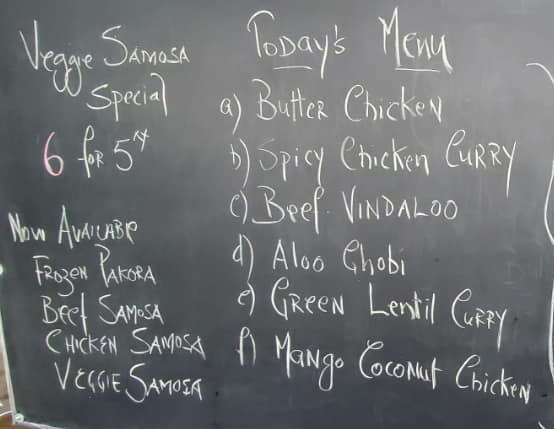 Veggie Samosa
Special
6 for 5
Now Available
Frozen Pakora
Beef Samosa
Chicken Samosa
Veggie Samosa
Today's Menu
a) Butter Chicken
b) Spicy Chicken Curry
c) Beef Vindaloo
d) Aloo Ghobi
e) Green Lentil Curry
f) Mango Coconut Chicken